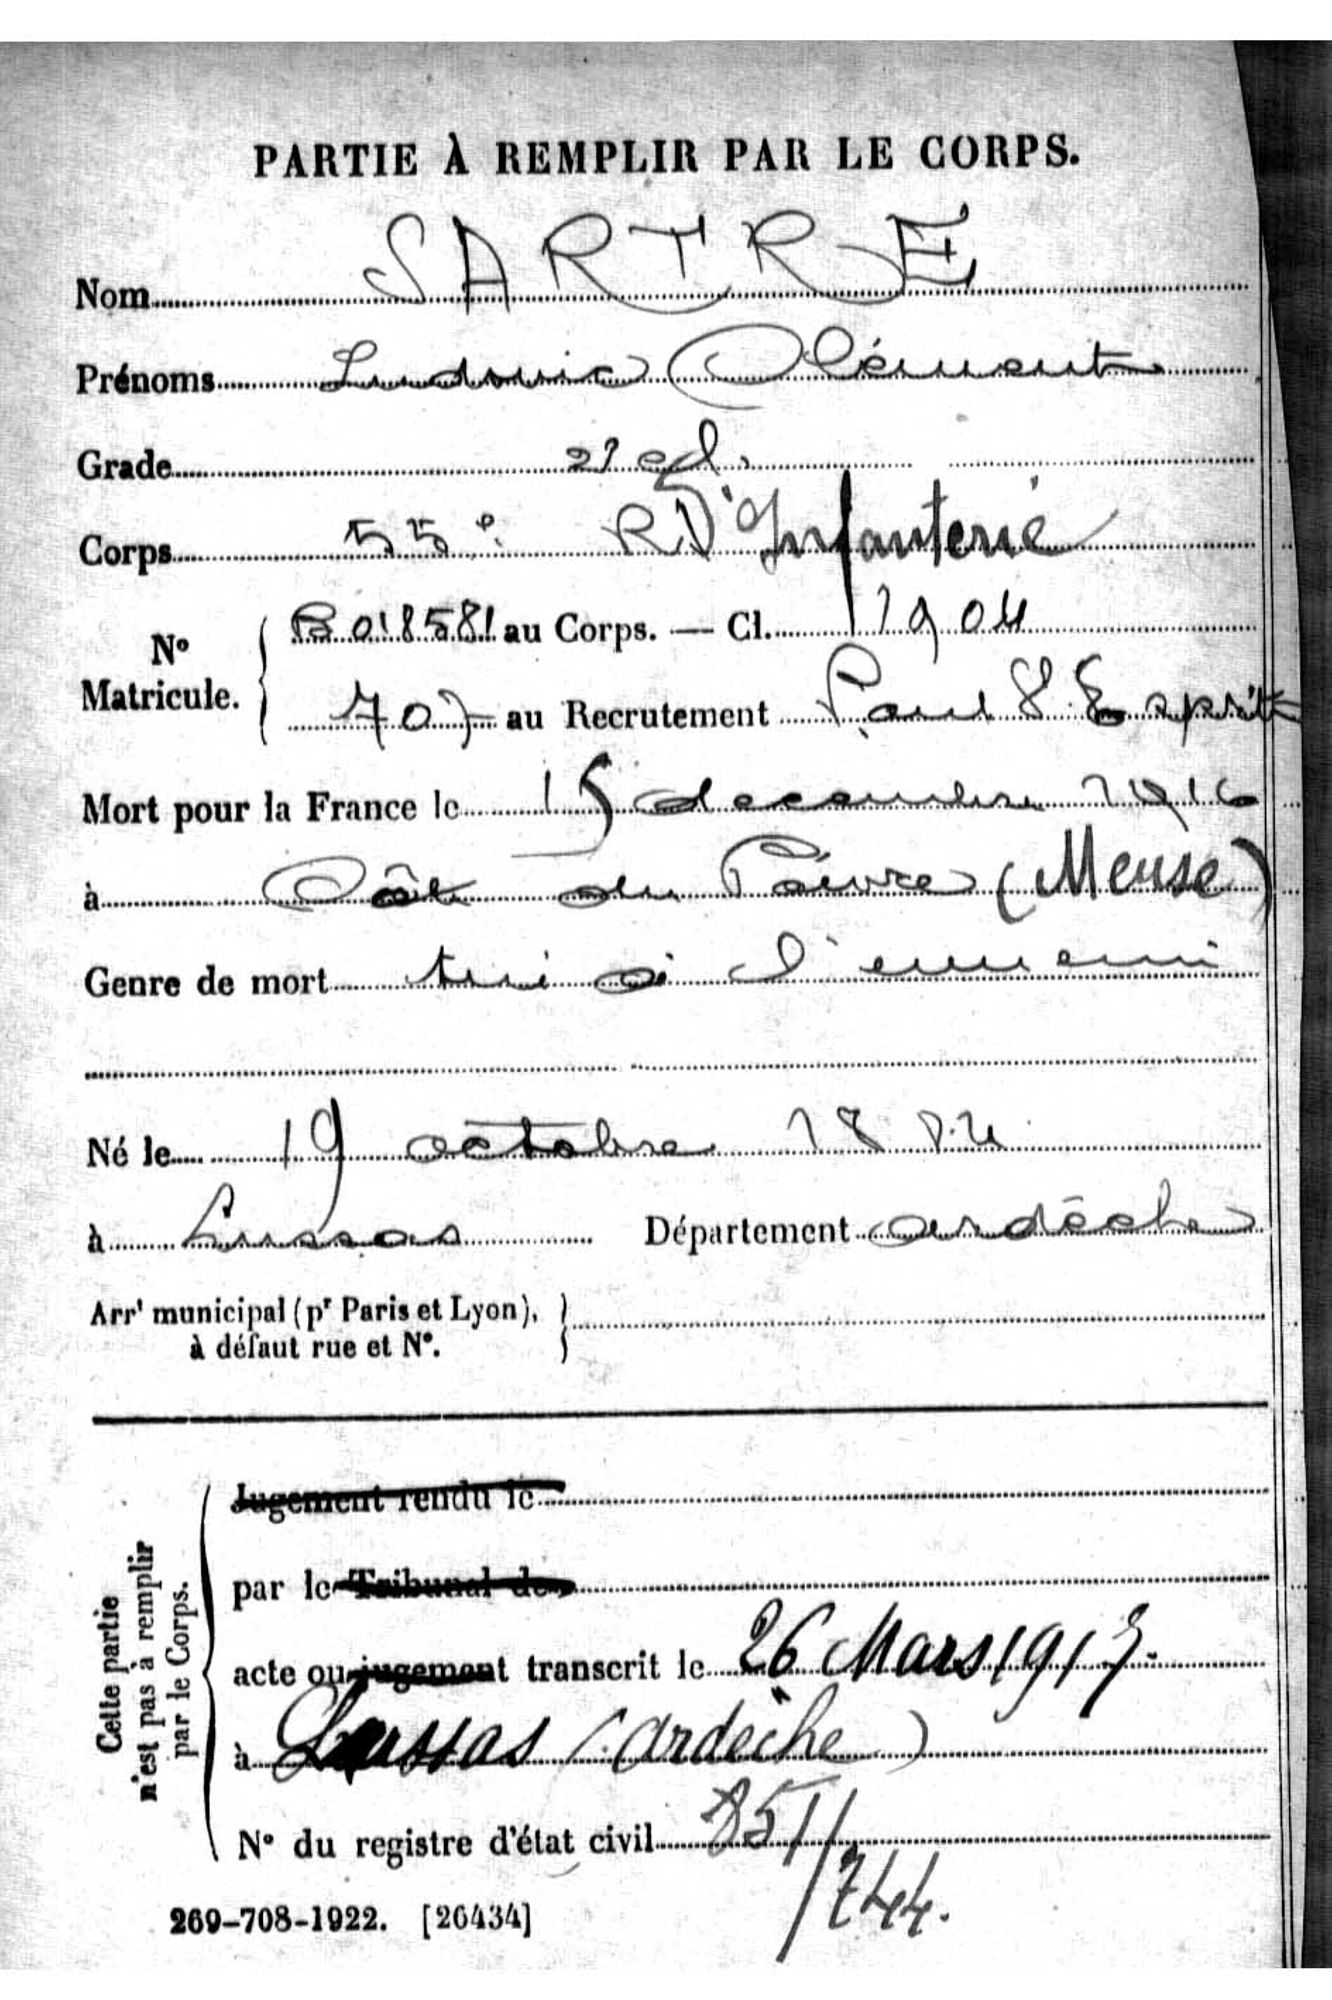 PARTIE À REMPLIR PAR LE CORPS.
Nom SARTRE
Prénoms Ludovic Clément
Grade 2e cl.
Corps 55e R D'Infanterie
No Matricule. 
B 018581 au Corps. — Cl. 1904
707 au Recrutement Pont St Esprit
Mort pour la France le 15 decembre 1916
à Côte du Poivre (Meuse)
Genre de mort tué à l'ennemi
Né le 19 octobre 1884
à Lussas Département ardèche
Arrt municipal (pr Paris et Lyon),
à défaut rue et No.
Cette partie
n'est pas à remplir
par le Corps.
Jugement rendu le
par le Tribunal de
acte ou jugement transcrit le 26 Mars 1917.
à Lussas (ardèche)
No du registre d'état civil
744.
269-708-1922. [26434]